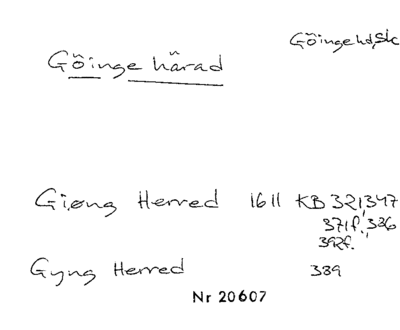 Göingehd, Sk
Göinge härad
Giøng Herred 1611 KB 321, 347
371f, 336
392f.
Gyng Herred 389
Nr 20607